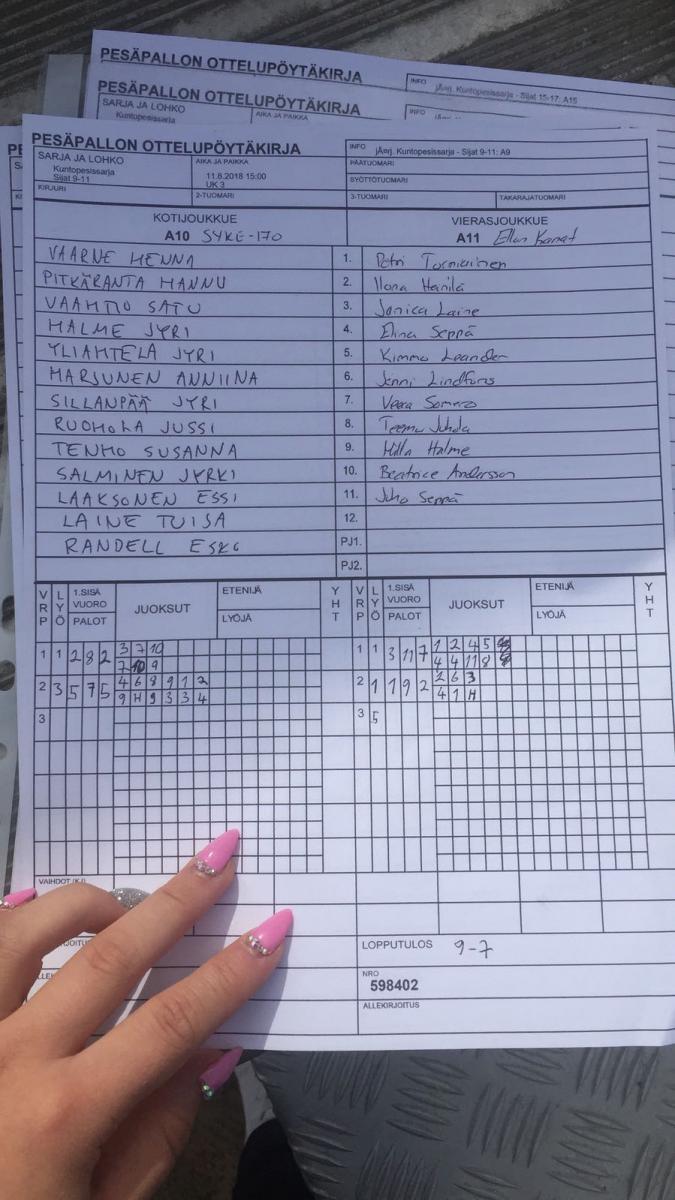 PESÄPALLON OTTELUPÖYTÄKIRJA
INFO jÄerj. Kuntopesissarja - Sijat 15-17: A15
PESÄPALLON OTTELUPÖYTÄKIRJA
SARJA JA LOHKO AIKA JA PAIKKA INFO
Kuntopesissarja
PESÄPALLON OTTELUPÖYTÄKIRJA
INFO jÄerj. Kuntopesissarja - Sijat 9-11: A9
SARJA JA LOHKO AIKA JA PAIKKA PÄÄTUOMARI
Kuntopesissarja 11.8.2018 15:00 SYÖTTÖTUOMARI
Sijat 9-11 UK 3
KIRJURI 2-TUOMARI 3-TUOMARI TAKARAJATUOMARI
KOTIJOUKKUE VIERASJOUKKUE
A10 SYKE-170 A11 Ellun Kanat
VAARNE HENNA 1. Petri Tormiainen
PITKÄRANTA HANNU 2. Ilona Heinilä
VAAHTIO SATU 3. Janica Laine
HALME JYRI 4. Elina Seppä
YLIAHTELA JYRI 5. Kimmo Leander
MARJUNEN ANNIINA 6. Jenni Lindfors
SILLANPÄÄ JYRI 7. Veera Somero
RUOHOLA JUSSI 8. Teemu Juhola
TENHO SUSANNA 9. Milla Halme
SALMINEN JYRKI 10. Beatrice Andersson
LAAKSONEN ESSI 11. Juho Seppä
LAINE TUISA 12.
RANDELL ESKO PJ1.
PJ2.
VRP LYÖ 1.SISÄ VUORO PALOT JUOKSUT ETENIJÄ LYÖJÄ YHT VRP LYÖ 1.SISÄ VUORO PALOT JUOKSUT ETENIJÄ LYÖJÄ YHT
3 7 10 1 2 4 5
1 1 2 8 2 7 10 9 1 1 3 11 7 4 4 11 8
4 6 8 9 1 2 2 6 3
2 3 5 7 5 9 H 9 3 3 4 2 1 1 9 2 4 1 H
3 3 5
VAIHDOT (K/
LOPPUTULOS 9-7
NRO
598402
ALLEKIRJOITUS